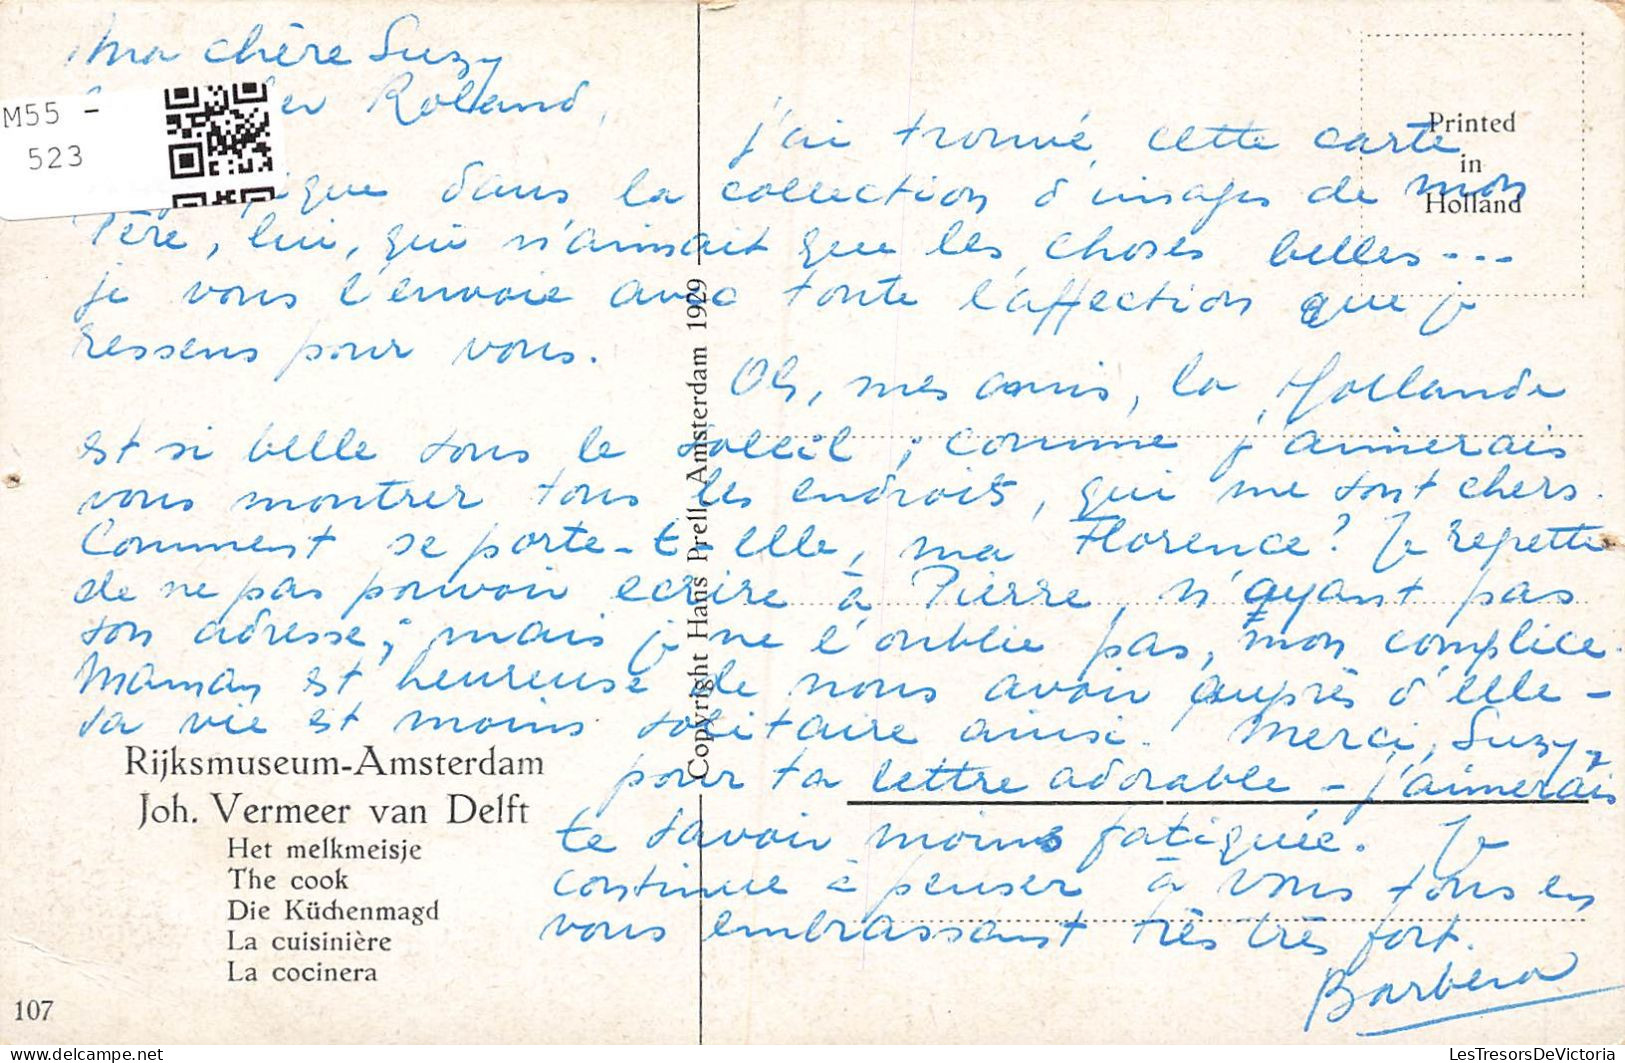 Ma chère Suzy
Roland,
j'ai trouvé cette carte
dans la collection d'images de mon
Père, lui, qui n'aimait que les choses belles...
je vous l'envoie avec toute l'affection que je
ressens pour vous.
Oh, mes amis, la Hollande
est si belle sous le soleil ; comme j'aimerais
vous montrer tous les endroits, qui me sont chers.
Comment se porte-t-elle, ma Florence ? Je regrette
de ne pas pouvoir ecrire à Pierre, n'ayant pas
son adresse ; mais je ne l'oublie pas, mon complice.
Maman est heureuse de nous avoir auprès d'elle -
sa vie est moins solitaire ainsi. Merci, Suzy,
pour ta lettre adorable - j'aimerais
te savoir moins fatiguée. Je
continue à penser à vous tous en
vous embrassant très très fort.
Barbera
M55 -
523
Printed
in
Holland
Copyright Hans Prell Amsterdam 1929
Rijksmuseum-Amsterdam
Joh. Vermeer van Delft
Het melkmeisje
The cook
Die Küchenmagd
La cuisinière
La cocinera
107
delcampe.net
LesTresorsDeVictoria